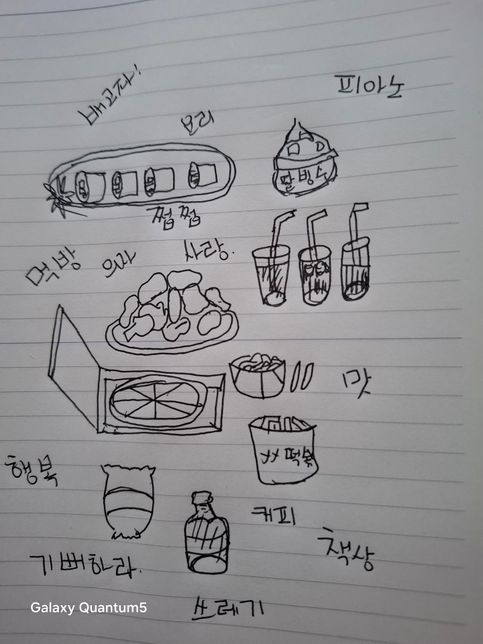 배고파!
피아노
요리
팥빙수
쩝쩝
먹방
의자
사랑.
맛
XX 떡볶
행복
커피
책상
기뻐하라.
쓰레기
Galaxy Quantum5